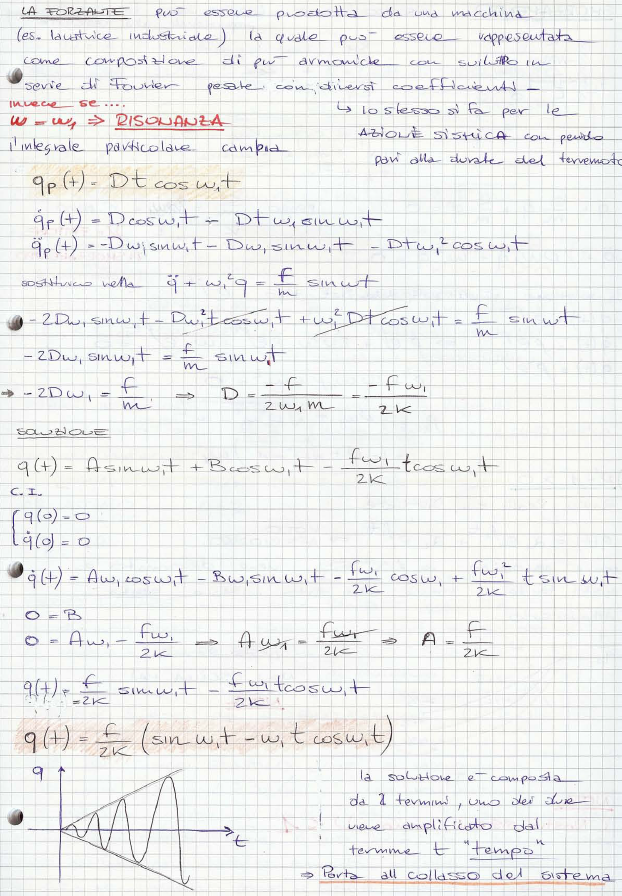 LA FORZANTE può essere prodotta da una macchina
(es. lavatrice industriale) la quale può essere rappresentata
come composizione di più armoniche con sviluppo in
serie di Fourier pesate con diversi coefficienti –
invece se ....
↳ lo stesso si fa per le
ω = ω₁ ⇒ RISONANZA
AZIONE SISMICA con periodo
l'integrale particolare cambia
pari alla durata del terremoto
qp(t) = Dt cos ω₁t
q̇p(t) = D cos ω₁t – Dt ω₁ sin ω₁t
q̈p(t) = -Dω₁ sin ω₁t – Dω₁ sin ω₁t – Dtω₁² cos ω₁t
sostituisco nella q̈ + ω₁²q = f/m sin ωt
- 2Dω₁ sin ω₁t – Dω₁²t cos ω₁t + ω₁² Dt cos ω₁t = f/m sin ωt
- 2Dω₁ sin ω₁t = f/m sin ω₁t
⇒ - 2Dω₁ = f/m ⇒ D = -f/2ω₁m = -fω₁/2K
SOLUZIONE
q(t) = A sin ω₁t + B cos ω₁t – fω₁/2K t cos ω₁t
C.I.
{ q(0) = 0
q̇(0) = 0
q̇(t) = Aω₁ cos ω₁t – Bω₁ sin ω₁t – fω₁/2K cos ω₁ + fω₁²/2K t sin ω₁t
0 = B
0 = Aω₁ – fω₁/2K ⇒ Aω₁ = fω₁/2K ⇒ A = f/2K
q(t) = f/2K sin ω₁t – fω₁/2K t cos ω₁t
q(t) = f/2K (sin ω₁t – ω₁ t cos ω₁t)
q
t
la soluzione è composta
da 2 termini, uno dei due
viene amplificato dal
termine t "tempo"
⇒ Porta all collasso del sistema